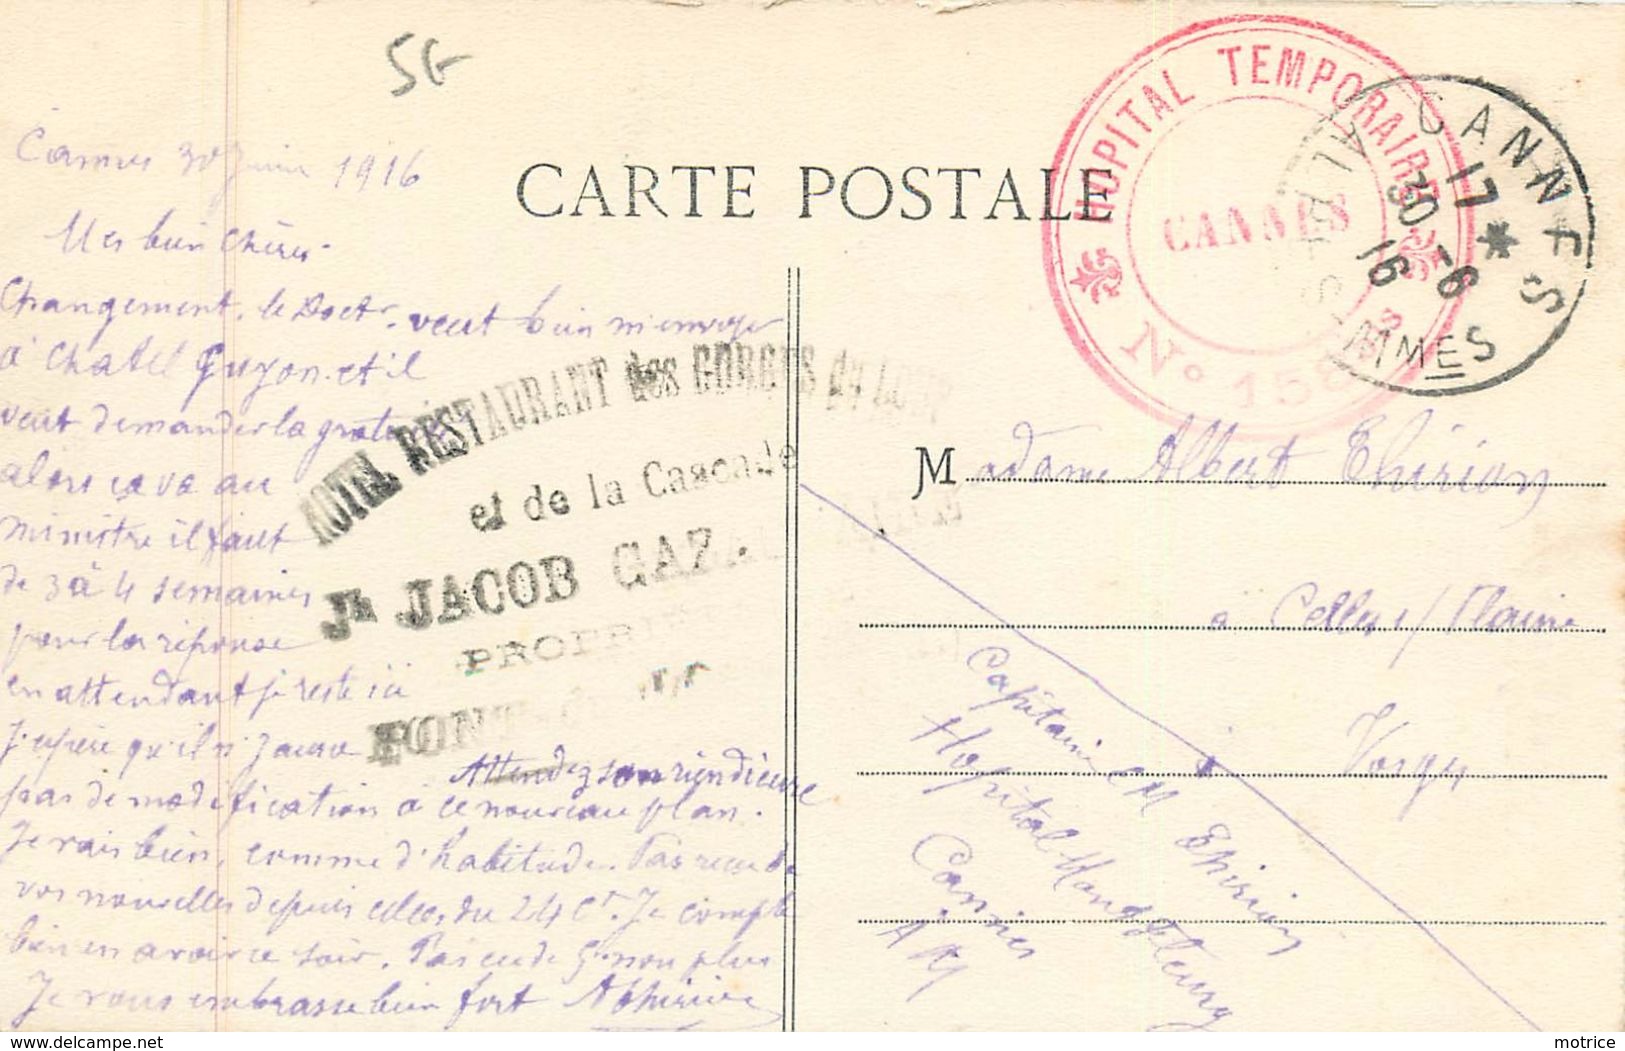 5G
Cannes 30 Juin 1916
Mes bien Chères
Changement. le Doctr. veut bien m'envoyer
à Chatel Guyon et il
veut demander la gratuité
alors ça va au
ministre il faut
de 3 à 4 semaines
pour la réponse
en attendant je reste ici
J'espère qu'il n'y aura
Attendez rien dieure
pas de modification à ce nouveau plan.
Je vais bien, comme d'habitude. Pas reçu de
vos nouvelles depuis celles du 24 ct. Je compte
bien en avoir ce soir. Pas eu de Gn non plus
Je vous embrasse bien fort AThirion
CARTE POSTALE
HOTEL RESTAURANT des GORGES du LOUP
et de la Cascade
Jh JACOB GAZ
PROPRIÉT
PONT
HOPITAL TEMPORAIRE
CANNES
No 158
CANNES
17 *
30 -6
16
ALPES-MMES
Madame Albert Thirion
à Celles s/ Plaine
Vosges
Capitaine Thirion
Hopital
Cannes
AM
delcampe.net
motrice